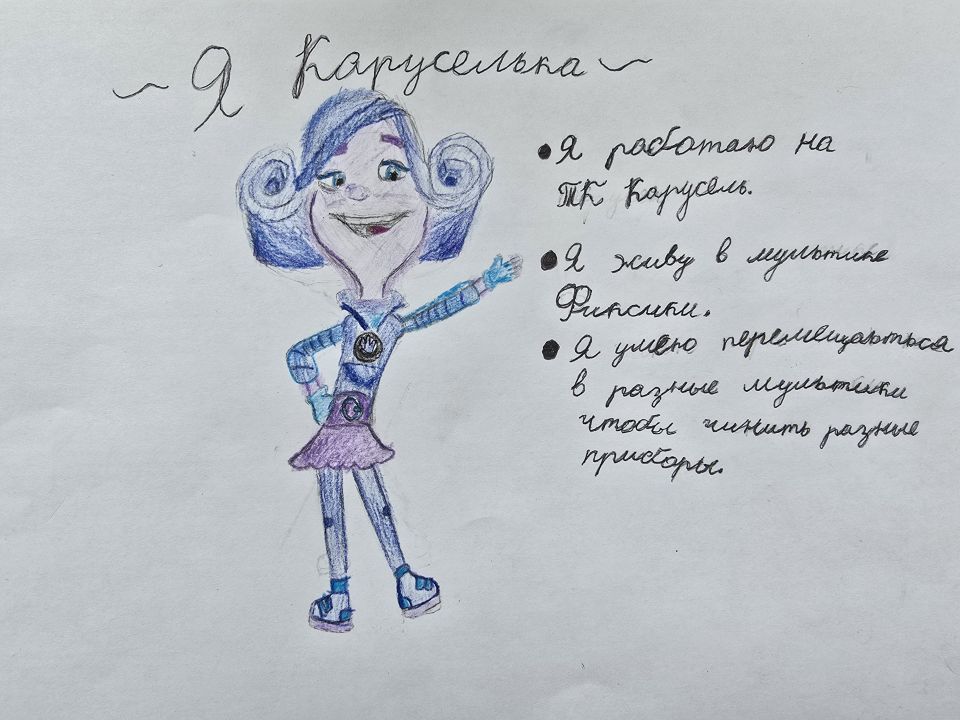 ~ Я Каруселька ~
• Я работаю на
ТК Карусель.
• Я живу в мультике
Фиксики.
• Я умею перемещаються
в разные мультики
чтобы чинить разные
приборы.